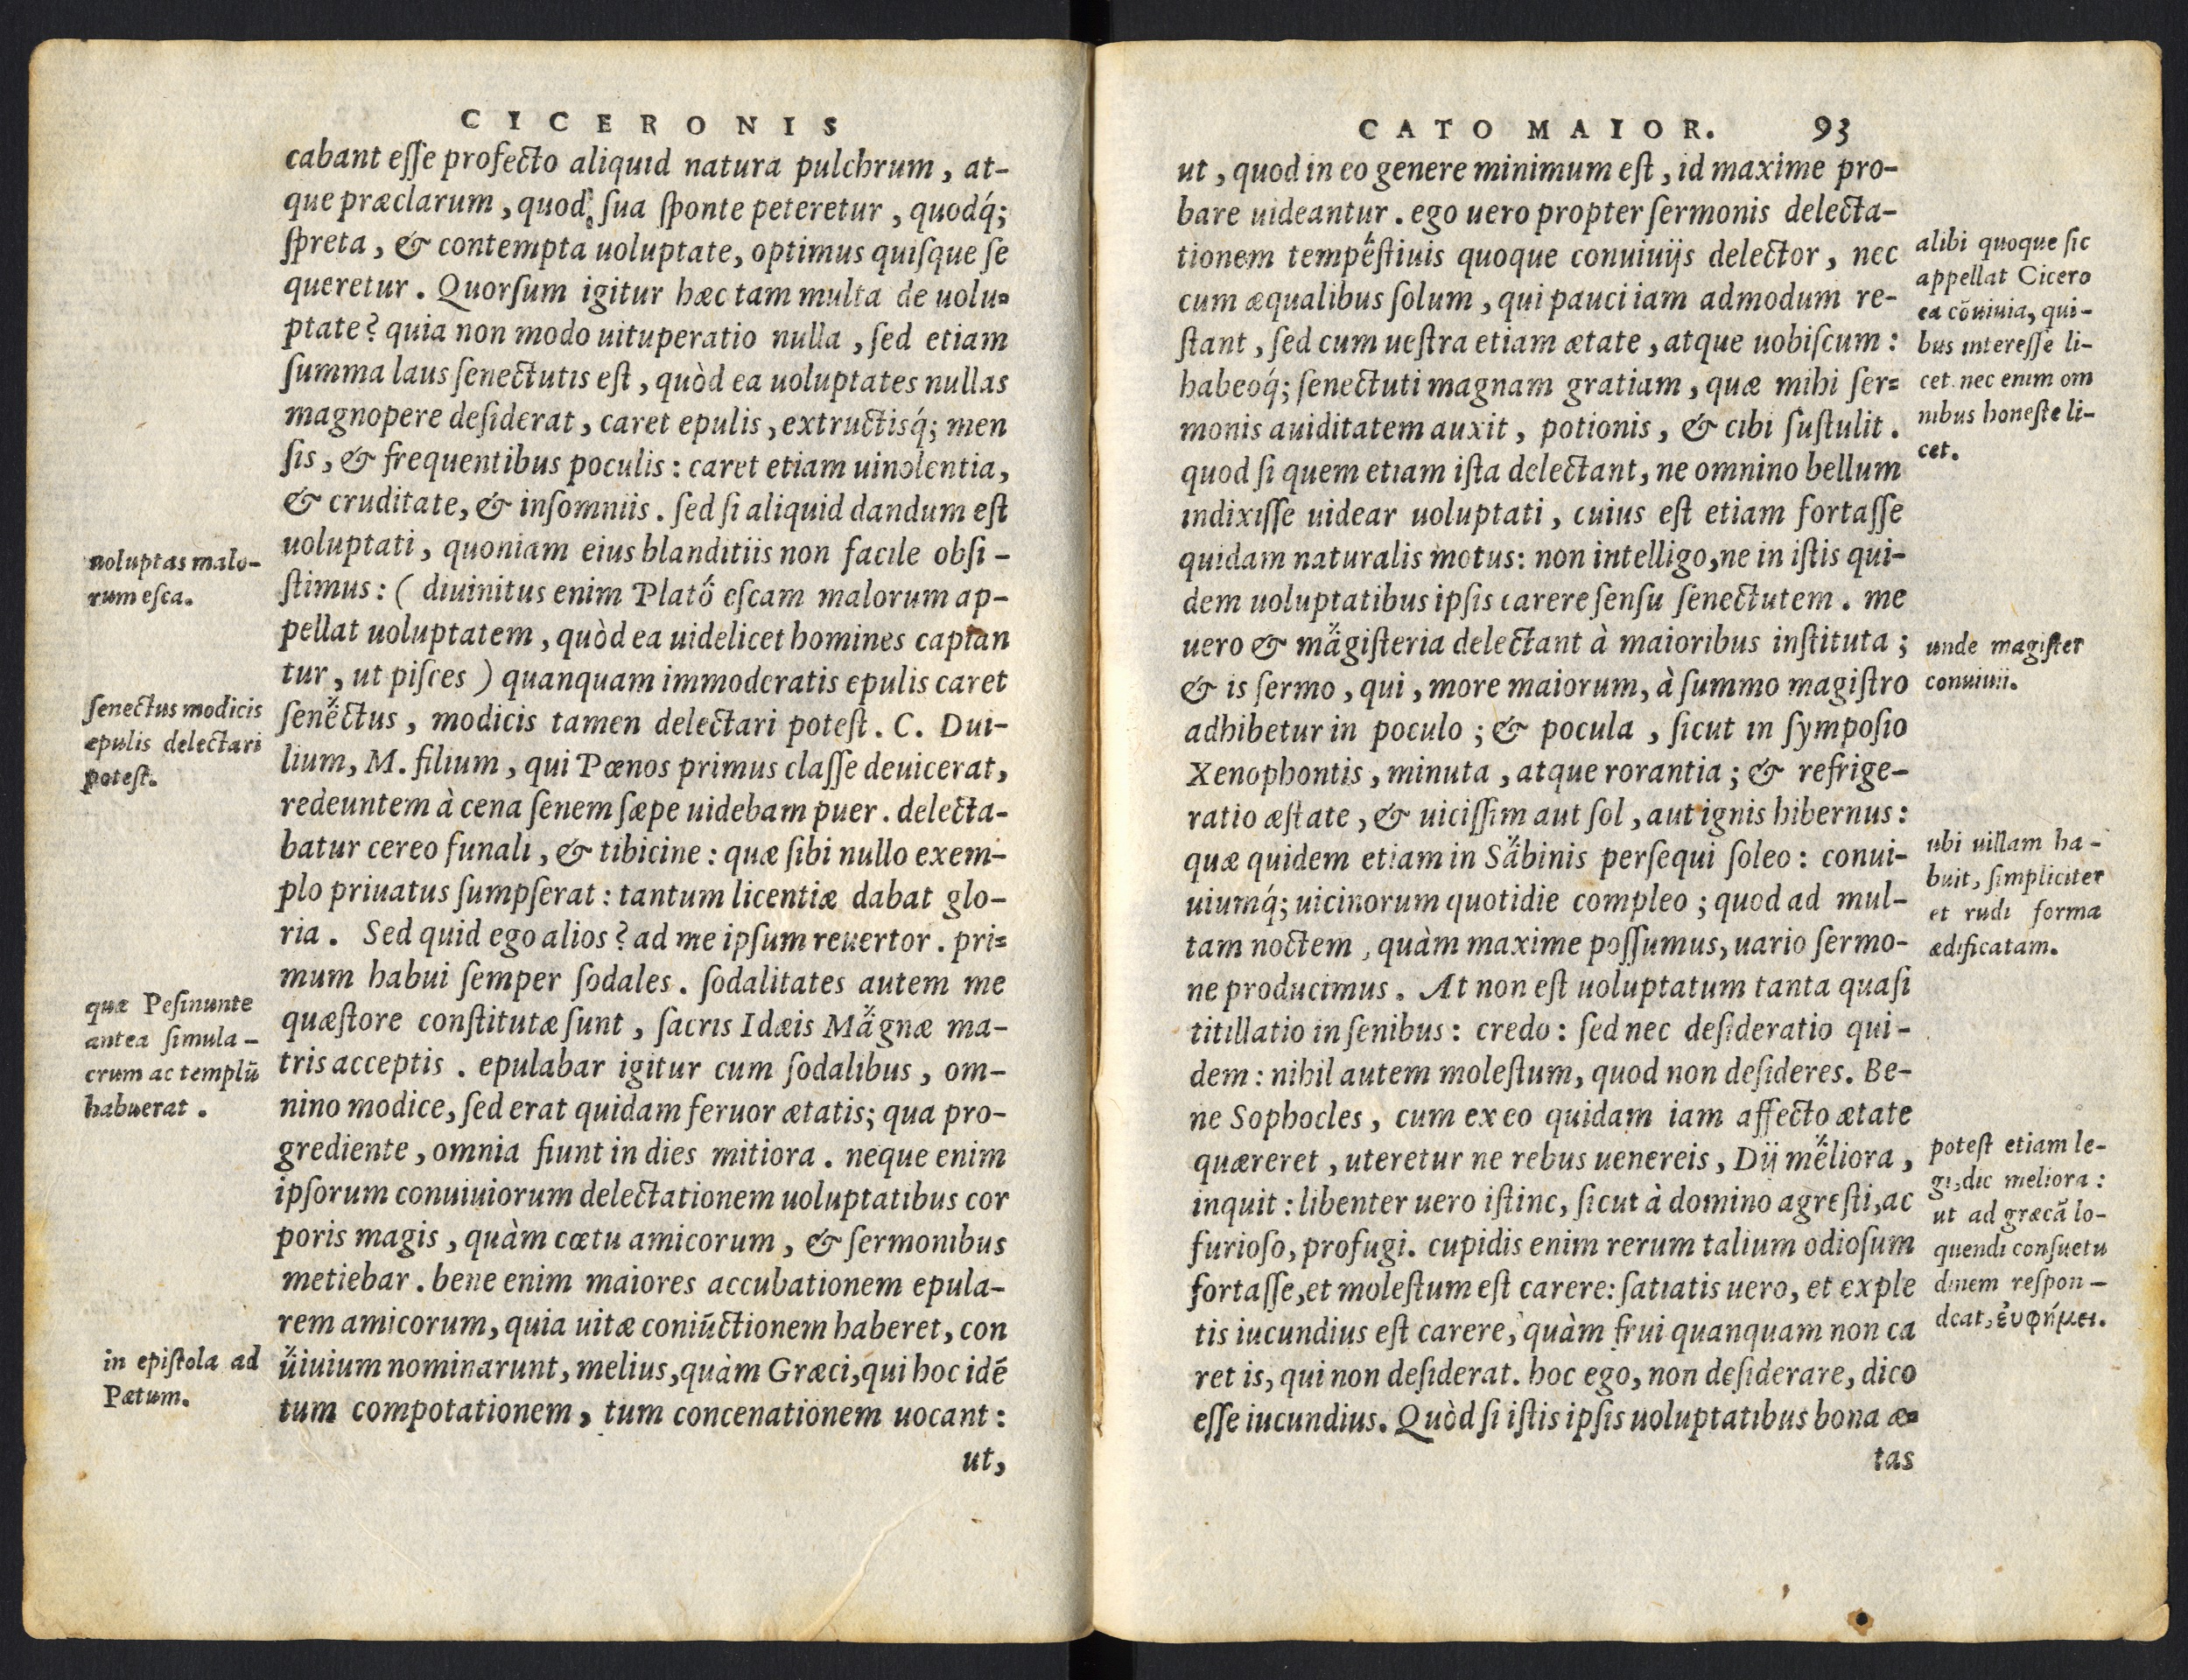 CICERONIS
cabant eſſe profecto aliquid natura pulchrum, at-
que præclarum, quod ſua ſponte peteretur, quodq́;
ſpreta, & contempta uoluptate, optimus quiſque ſe
queretur. Quorſum igitur hæc tam multa de uolu-
ptate? quia non modo uituperatio nulla, ſed etiam
ſumma laus ſenectutis eſt, quòd ea uoluptates nullas
magnopere deſiderat, caret epulis, extructisq́; men
ſis, & frequentibus poculis: caret etiam uinolentia,
& cruditate, & inſomniis. ſed ſi aliquid dandum eſt
uoluptati, quoniam eius blanditiis non facile obſi-
ſtimus: ( diuinitus enim Plato eſcam malorum ap-
pellat uoluptatem, quòd ea uidelicet homines capian
tur, ut piſces ) quanquam immoderatis epulis caret
ſenectus, modicis tamen delectari poteſt. C. Dui-
lium, M. filium, qui Pœnos primus claſſe deuicerat,
redeuntem à cena ſenem ſæpe uidebam puer. delecta-
batur cereo funali, & tibicine: quæ ſibi nullo exem-
plo priuatus ſumpſerat: tantum licentiæ dabat glo-
ria. Sed quid ego alios? ad me ipſum reuertor. pri-
mum habui ſemper ſodales. ſodalitates autem me
quæſtore conſtitutæ ſunt, ſacris Idæis Magnæ ma-
tris acceptis. epulabar igitur cum ſodalibus, om-
nino modice, ſed erat quidam feruor ætatis; qua pro-
grediente, omnia fiunt in dies mitiora. neque enim
ipſorum conuiuiorum delectationem uoluptatibus cor
poris magis, quàm cœtu amicorum, & ſermonibus
metiebar. bene enim maiores accubationem epula-
rem amicorum, quia uitæ coniūctionem haberet, con
uiuium nominarunt, melius, quàm Græci, qui hoc idē
tum compotationem, tum concenationem uocant:
ut,
uoluptas malo-
rum eſca.
ſenectus modicis
epulis delectari
poteſt.
quæ Peſinunte
antea ſimula-
crum ac templū
habuerat.
in epiſtola ad
Pætum.
CATO MAIOR. 93
ut, quod in eo genere minimum eſt, id maxime pro-
bare uideantur. ego uero propter ſermonis delecta-
tionem tempeſtiuis quoque conuiuijs delector, nec
cum æqualibus ſolum, qui pauci iam admodum re-
ſtant, ſed cum ueſtra etiam ætate, atque uobiſcum:
habeoq́; ſenectuti magnam gratiam, quæ mihi ſer-
monis auiditatem auxit, potionis, & cibi ſuſtulit.
quod ſi quem etiam iſta delectant, ne omnino bellum
indixiſſe uidear uoluptati, cuius eſt etiam fortaſſe
quidam naturalis motus: non intelligo, ne in iſtis qui-
dem uoluptatibus ipſis carere ſenſu ſenectutem. me
uero & magiſteria delectant à maioribus inſtituta;
& is ſermo, qui, more maiorum, à ſummo magiſtro
adhibetur in poculo; & pocula, ſicut in ſympoſio
Xenophontis, minuta, atque rorantia; & refrige-
ratio æſtate, & uiciſſim aut ſol, aut ignis hibernus:
quæ quidem etiam in Sabinis perſequi ſoleo: conui-
uiumq́; uicinorum quotidie compleo; quod ad mul-
tam noctem, quàm maxime poſſumus, uario ſermo-
ne producimus. At non eſt uoluptatum tanta quaſi
titillatio in ſenibus: credo: ſed nec deſideratio qui-
dem: nihil autem moleſtum, quod non deſideres. Be-
ne Sophocles, cum ex eo quidam iam affecto ætate
quæreret, uteretur ne rebus uenereis, Dij meliora,
inquit: libenter uero iſtinc, ſicut à domino agreſti, ac
furioſo, profugi. cupidis enim rerum talium odioſum
fortaſſe, et moleſtum eſt carere: ſatiatis uero, et exple
tis iucundius eſt carere, quàm frui quanquam non ca
ret is, qui non deſiderat. hoc ego, non deſiderare, dico
eſſe iucundius. Quòd ſi iſtis ipſis uoluptatibus bona æ-
tas
alibi quoque ſic
appellat Cicero
ea cōuiuia, qui-
bus intereſſe li-
cet. nec enim om
nibus honeſte li-
cet.
unde magiſter
conuiuii.
ubi uillam ha-
buit, ſimpliciter
et rudi forma
ædificatam.
poteſt etiam le-
gi, dic meliora:
ut ad græcā lo-
quendi conſuetu
dinem reſpon-
deat, εὐφήμει.